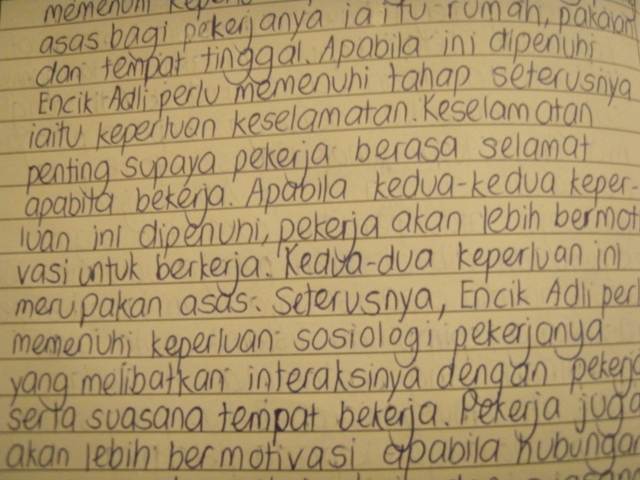 memenuhi keperl
asas bagi pekerjanya iaitu rumah, pakaian
dan tempat tinggal. Apabila ini dipenuhi
Encik Adli perlu memenuhi tahap seterusnya
iaitu keperluan keselamatan. Keselamatan
penting supaya pekerja berasa selamat
apabila bekerja. Apabila kedua-kedua keper-
luan ini dipenuhi, pekerja akan lebih bermoti
vasi untuk berkerja. Kedua-dua keperluan ini
merupakan asas. Seterusnya, Encik Adli perl
memenuhi keperluan sosiologi pekerjanya
yang melibatkan interaksinya dengan pekerja
serta suasana tempat bekerja. Pekerja juga
akan lebih bermotivasi apabila hubungan